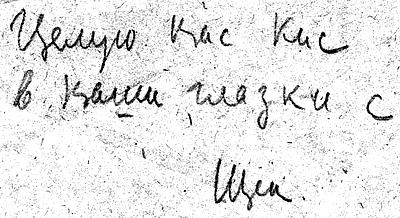 Целую Вас Кис
в Ваши глазки с
Щен